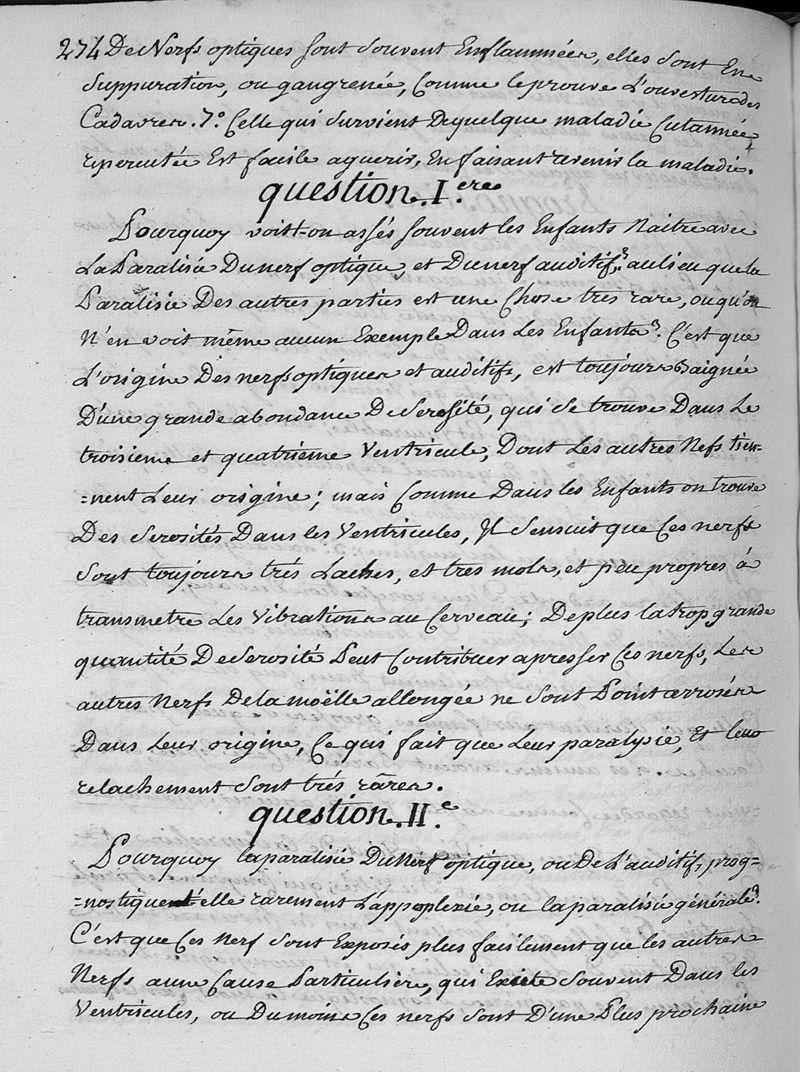 274 Des Nerfs optiques sont souvent Enflammées, elles sont En
suppuration, ou gangrenée, Comme le prouve L'ouverture des
Cadavres. 7.º Celle qui survient De quelque maladie Cutannée
repercutée Est facile aguerir, En faisant revenir la maladie.
question. I.ere
Pourquoy voist-on assés souvent les Enfants Naitre avec
La Paralisie Du nerf optique, et Du nerf auditif? au lieu que la
Paralisie Des autres parties est une Chose trés rare, ou qu'on
N'en voit même aucun Exemple Dans Les Enfants? C'est que
L'origine Des nerfs optiques et auditifs, est toujours Baignée
D'une grande abondance De Serosité, qui se trouve Dans Le
troisieme et quatriême Ventricule, Dont Les autres Nefs tien-
=nent Leur origine; mais Comme Dans les Enfants on trouve
Des serosités Dans les Ventricules, Jl s'ensuit que Ces nerfs
sont toujours trés Laches, et tres mols, et peu propres à
transmetre Les Vibrations au Cerveau; De plus la trop grande
quantité De Serosité Peut Contribuer apresser Ces nerfs, Les
autres nerfs De la moëlle allongée ne sont Point arrosés
Dans Leur origine, Ce qui fait que Leur paralysie, Et leur
relachement sont trés râres.
question. II.e
Pourquoy la paralisie Du Nerf optique, ou De L'auditif, prog=
=nostiquent'elle rarement L'appoplexie, ou la paralisie générale?
C'est que Ces Nerf sont Exposés plus facilement que les autres
Nerfs aune Cause Particuliere, qui Existe souvent Dans les
Ventricules, ou Du moins Ces nerfs sont D'une Plus prochaine